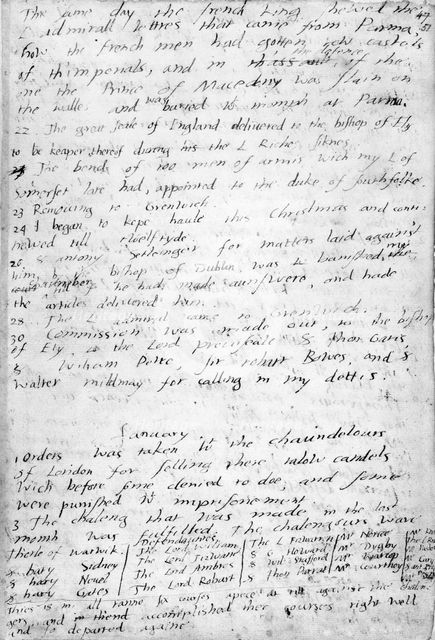 The same day the french king shewed the
L admirall lettres that came from Parma,
how the french men had gotten tow castels
of th'imperials, and in the defence of the
one the Prince of Macedony was slain on
the walles and was buried wt triumph at Parma.
22 The great seale of England delivered to the bishop of Ely
to be keaper therof during his the L Riches siknes.
The bende of 100 men of armis wich my L of
Somerset late had, appointed to the duke of southfolke.
23 Removing to Grenwich.
24 I began to kepe haule this Christmas and conti-
newed till twelftyde.
26. S antony for matters laid against
him by bishop of Dublin, was banished my
he had made aunswere, and had
the articles delivered him.
28. The L admiral came to Grenwich.
30 Commission was made out, to the bishop
of Ely, the Lord privi seale S Jhon Gates,
S William Petre, Sir robart Bowes, and S
Walter mildmay for calling in my dettis.
January
1 Orders was taken wt the chaundelours
of London for selling there talow candels
wich before some denied to doe, and some
were punished wt imprisonement
3 The chaleng that was made in the last
month was fulfilled. The chalengours wear
Th'erle of warwik. The Lord William The L Fitzwarin Mr Norice
S hary Sidney The Lord S G Howard Mr Digby
S hary Nevel The Lord Ambros S wil Stafford Mr
S hary Gates The Lord Robart S Jhon Parrat Mr Courtney
Thies in all ranne 6 courses apece at tilt against the chalen-
gers, and in th'end accomplished ther courses right well
and so departed againe